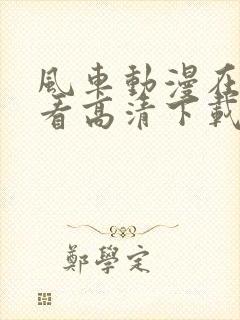 風車動漫在
看高清下載
鄭學定